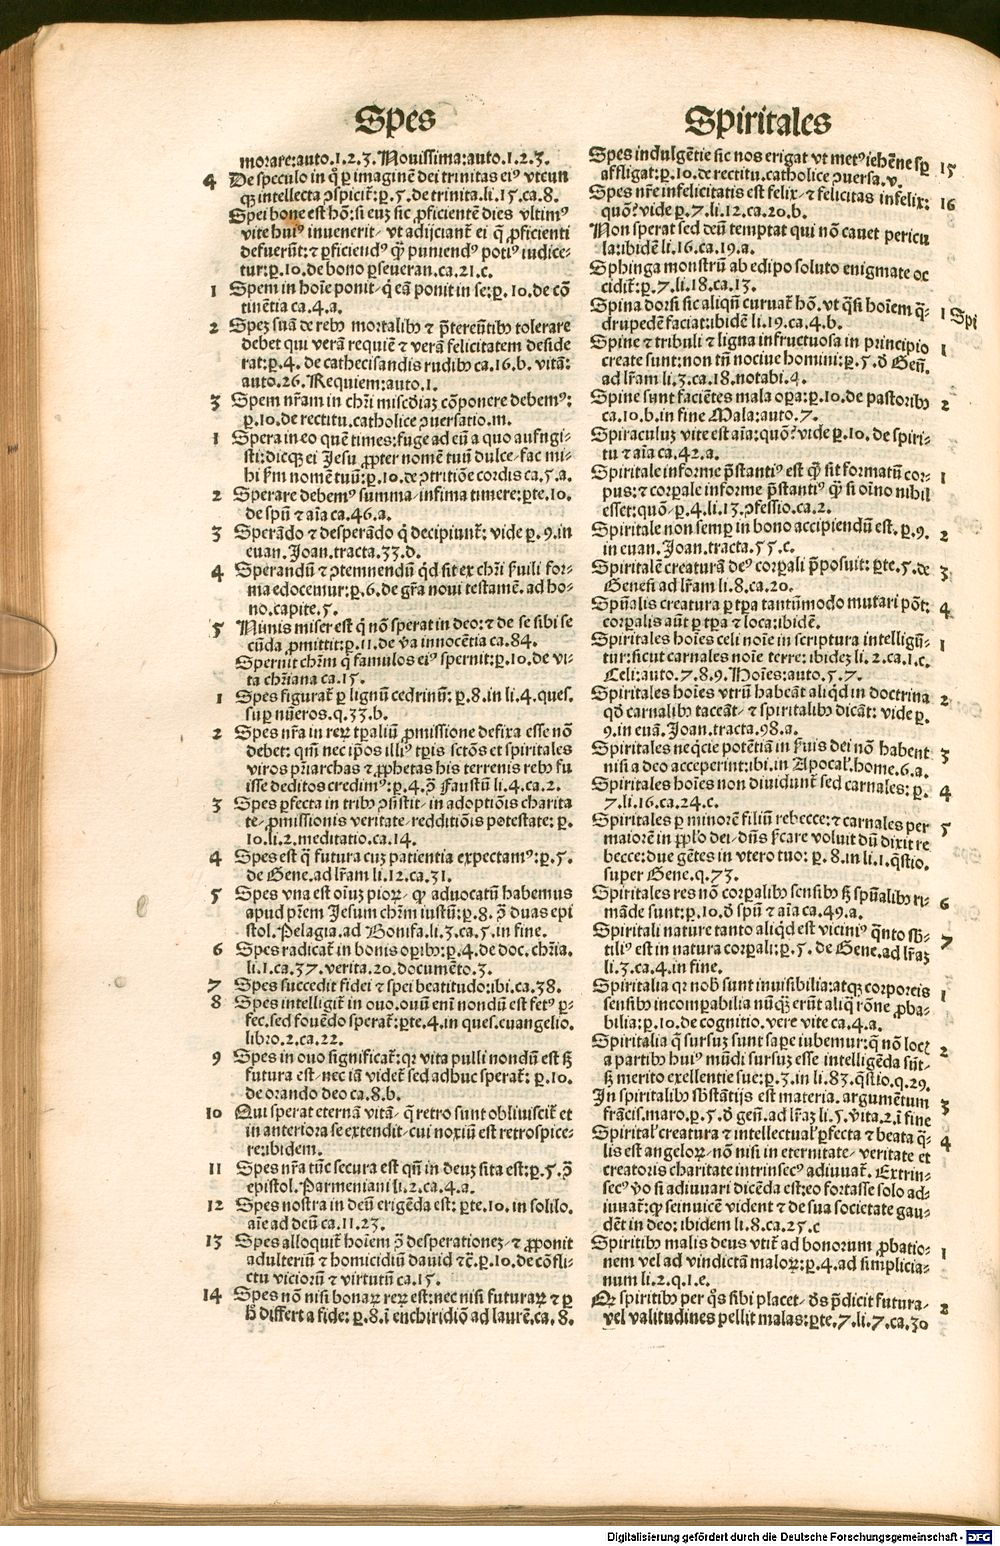 Spes
morare:auto.1.2.3. Nouissima:auto.1.2.3.
4 De speculo in q̄ ꝑ imaginē dei trinitas eiꝰ vtcun
qꝫ intellecta ꝯspicit̄: ꝑ.5. de trinita.li.15.ca.8.
Spei bone est hō: si euꝫ sic ꝓficientē dies vltimꝰ
vite huiꝰ inuenerit/ vt adijciant̄ ei q̄ ꝓficienti
defuerūt: ⁊ ꝑficiendꝰ q̄ꝫ puniendꝰ potiꝰ iudice⸗
tur: ꝑ.10. de bono ꝑseueran.ca.21.c.
1 Spem in hoīe ponit/ q̄ eā ponit in se: ꝑ.10. de cō
tinētia ca.4.a.
2 Speꝫ suā de rebꝰ mortalibꝰ ⁊ p̄tereūtibꝰ tolerare
debet qui verā requiē ⁊ verā felicitatem deside
rat: ꝑ.4. de cathecisandis rudibꝰ ca.16.b. vitā:
auto.26. Requiem:auto.1.
3 Spem nr̄am in chr̄i miscd̄iaꝫ cōponere debemꝰ:
ꝑ.10. de rectitu.catholice ꝯuersatio.m.
1 Spera in eo quē times: fuge ad eū a quo aufugi⸗
sti: dicqꝫ ei Jesu ꝓpter nomē tuū dulce/ fac mi⸗
hi ẜm nomē tuū: ꝑ.10. de ꝯtritiōe cordis ca.5.a.
2 Sperare debemꝰ summa/ infima timere: ꝑte.10.
de spū ⁊ aīa ca.46.a.
3 Sperādo ⁊ desperādo q̄ decipiunt̄: vide ꝑ.9. in
euan. Joan.tracta.33.d.
4 Sperandū ⁊ ꝯtemnendū q̄d sit ex chr̄i ẜuili for⸗
ma edocemur: ꝑ.6. de gr̄a noui testamē. ad ho⸗
no.capite.5.
5 Nimis miser est q̄ nō sperat in deo: ⁊ de se sibi se
cūda ꝓmittit: ꝑ.11. de v̄a innocētia ca.84.
Spernit chr̄m q̄ famulos eiꝰ spernit: ꝑ.10. de vi⸗
ta chr̄iana ca.15.
1 Spes figurat̄ ꝑ lignū cedrinū: ꝑ.8. in li.4. ques.
suꝑ nūeros.q.33.b.
2 Spes nr̄a in reꝝ tꝑaliū ꝓmissione defixa esse nō
debet: qm̄ nec ip̄os illiꝰ tꝑis sctōs et spiritales
viros pr̄iarchas ⁊ ꝓphetas his terrenis rebꝰ fu
isse deditos credimꝰ: ꝑ.4. ꝯ̄ Faustū li.4.ca.2.
3 Spes ꝑfecta in tribꝰ ꝯsistit/ in adoptiōis charita
te/ ꝓmissionis veritate/ redditiōis potestate: ꝑ.
10.li.2. meditatio.ca.14.
4 Spes est q̄ futura cuꝫ patientia expectamꝰ: ꝑ.5.
de Gene.ad lr̄am li.12.ca.31.
5 Spes vna est oīuꝫ pioꝝ/ qꝙ aduocatū habemus
apud pr̄em Jesum chr̄m iustū: ꝑ.8. ꝯ̄ duas epi
stol. Pelagia.ad Bonifa.li.3.ca.5. in fine.
6 Spes radicat̄ in bonis oꝑibꝰ: ꝑ.4. de doc. chr̄ia.
li.1.ca.37. verita.20. documēto.3.
7 Spes succedit fidei ⁊ spei beatitudo: ibi.ca.38.
8 Spes intelligit̄ in ouo. ouū enī nondū est fetꝰ ꝑ⸗
fec. sed fouēdo sperat̄: ꝑte.4. in ques. euangelio.
libro.2.ca.22.
9 Spes in ouo significat̄: qꝛ vita pulli nondū est ſꝫ
futura est/ nec iā videt̄ sed adhuc sperat̄: ꝑ.10.
de orando deo ca.8.b.
10 Qui sperat eternā vitā/ q̄ retro sunt obliuiscit̄ et
in anteriora se extendit/ cui noxiū est retrospice⸗
re: ibidem.
11 Spes nr̄a tūc secura est qn̄ in deuꝫ sita est: ꝑ.5. ꝯ̄
epistol. Parmeniani li.2.ca.4.a.
12 Spes nostra in deū erigēda est: ꝑte.10. in solilo.
aīe ad deū ca.11.23.
13 Spes alloquit̄ hoīem ꝯ̄ desperationeꝫ/ ⁊ ꝓponit
adulteriū ⁊ homicidiū dauid ⁊c̄. ꝑ.10. de cōfli⸗
ctu vicioꝝ ⁊ virtutū ca.15.
14 Spes nō nisi bonaꝝ reꝝ est: nec nisi futuraꝝ ⁊ ꝑ
h̄ differt a fide: ꝑ.8. ī enchiridiō ad laurē.ca.8.
Spiritales
Spes indulgētie sic nos erigat vt metꝰ iehēne sꝑ 15
affligat: ꝑ.10. de rectitu.catholice ꝯuersa.v.
Spes nr̄e infelicitatis est felix/ ⁊ felicitas infelix: 16
quō? vide ꝑ.7.li.12.ca.20.b.
Non sperat sed deū temptat qui nō cauet pericu
la: ibidē li.16.ca.19.a.
Sphinga monstrū ab edipo soluto enigmate oc
cidit̄: ꝑ.7.li.18.ca.13.
Spina dorsi sic aliqn̄ curuat̄ hō. vt q̄si hoīem q̄⸗ 1 Spi
drupedē faciat: ibidē li.19.ca.4.b.
Spine ⁊ tribuli ⁊ ligna infructuosa in principio 1
create sunt: non tn̄ nociue homini: ꝑ.5. ð Geń.
ad lr̄am li.3.ca.18. notabi.4.
Spine sunt faciētes mala oꝑa: ꝑ.10. de pastoribꝰ 2
ca.10.b. in fine Mala: auto.7.
Spiraculuꝫ vite est aīa: quō? vide ꝑ.10. de spiri⸗
tu ⁊ aīa ca.42.a.
Spiritale informe p̄stantiꝰ est q̄ꝫ sit formatū cor⸗ 1
pus: ⁊ corꝑale informe p̄stantiꝰ q̄ꝫ si oīno nihil
esset: quō/ ꝑ.4.li.13. ꝯfessio.ca.2.
Spiritale non semꝑ in bono accipiendū est. ꝑ.9. 2
in euan. Joan.tracta.55.c.
Spiritalē creaturā deꝰ corꝑali p̄posuit: ꝑte.5. de 3
Genesi ad lr̄am li.8.ca.20.
Spūalis creatura ꝑ tꝑa tantūmodo mutari pōt: 4
corꝑalis aūt ꝑ tꝑa ⁊ loca: ibidē.
Spiritales hoīes celi noīe in scriptura intelligū⸗ 1
tur: sicut carnales noīe terre: ibideꝫ li.2.ca.1.c.
Celi: auto.7.8.9. Hoīes: auto.5.7.
Spiritales hoīes vtrū habeāt aliq̄d in doctrina 2
qð carnalibꝰ taceāt/ ⁊ spiritalibꝰ dicāt: vide ꝑ.
9. in euā. Joan.tracta.98.a.
Spiritales neq̄cie potētiā in ẜuis dei nō habent 3
nisi a deo acceperint: ibi. in Apocaľ.home.6.a.
Spiritales hoīes non diuidunt̄ sed carnales: ꝑ. 4
7.li.16.ca.24.c.
Spiritales ꝑ minorē filiū rebecce: ⁊ carnales per 5
maiorē in ꝓplo dei/ dn̄s ẜcare voluit dū dixit re
becce: due gētes in vtero tuo: ꝑ.8. in li.1. q̄stio.
super Gene.q.73.
Spiritales res nō corꝑalibꝰ sensibꝰ ſꝫ spūalibꝰ ri⸗ 6
māde sunt: ꝑ.10. ð spū ⁊ aīa ca.49.a.
Spiritali nature tanto aliq̄d est viciniꝰ q̄nto sb̄⸗ 7
tiliꝰ est in natura corꝑali: ꝑ.5. de Gene. ad lr̄aꝫ
li.3.ca.4. in fine.
Spiritalia qꝛ nob̄ sunt inuisibilia: atqꝫ corporeis 1
sensibꝰ incomꝑabilia nūq̄ꝫ erūt aliq̄ rōne ꝓba⸗
bilia: ꝑ.10. de cognitio.vere vite ca.4.a.
Spiritalia q̄ sursuꝫ sunt saꝑe iubemur: q̄ nō locꝭ 2
a partibꝰ huiꝰ mūdi sursuꝫ esse intelligēda sūt⸗
ſꝫ merito exellentie sue: ꝑ.3. in li.83. q̄stio.q.29.
In spiritalibꝰ sb̄stātijs est materia. argumētum 3
frācis.maro. ꝑ.5. ð geń. ad lr̄aꝫ li.5. v̄ita.2. ī fine
Spiritaľ creatura ⁊ intellectuaľ ꝑfecta ⁊ beata q̄⸗ 4
lis est angeloꝝ/ nō nisi in eternitate/ veritate et
creatoris charitate intrinsecꝰ adiuuat̄. Extrin⸗
secꝰ v̄o si adiuuari dicēda est: eo fortasse solo ad⸗
iuuat̄: qꝙ seinuicē vident ⁊ de sua societate gau⸗
dēt in deo: ibidem li.8.ca.25.c
Spiritibꝰ malis deus vtit̄ ad bonorum ꝓbatio⸗ 1
nem vel ad vindictā maloꝝ: ꝑ.4. ad simplicia⸗
num li.2.q.1.e.
Qꝛ spiritibꝰ per q̄s sibi placet/ ðs p̄dicit futura/ 2
vel valitudines pellit malas: ꝑte.7.li.7.ca.30
Digitalisierung gefördert durch die Deutsche Forschungsgemeinschaft - DFG